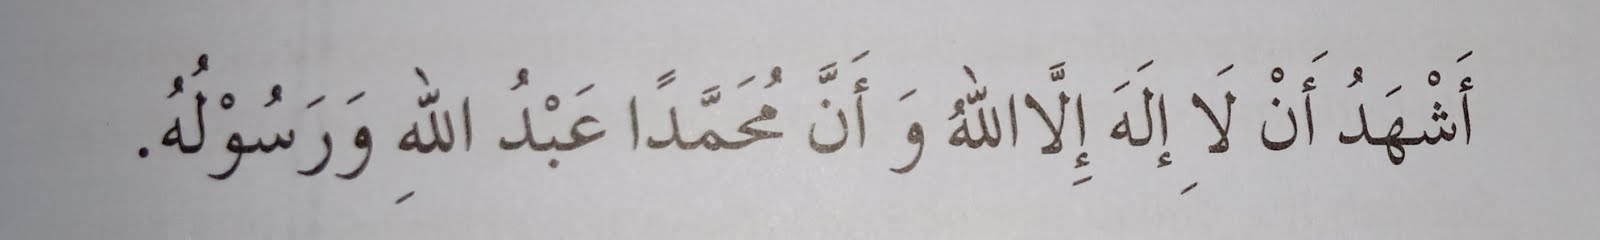 أَشْهَدُ أَنْ لَا إِلَهَ إِلَّا اللّٰهُ وَ أَنَّ مُحَمَّدًا عَبْدُ اللّٰهِ وَرَسُوْلُهُ.